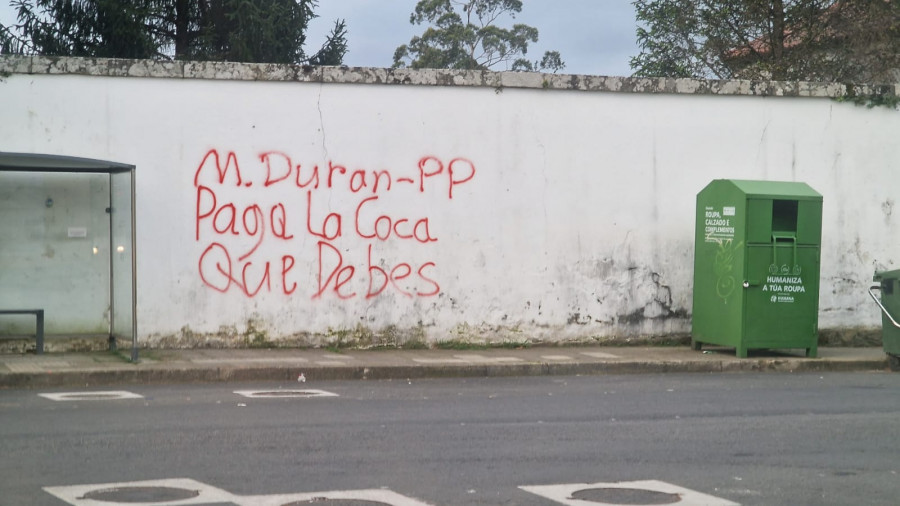 M. Duran-PP
Paga La Coca
Que Debes
ROUPA,
CALZADO E
COMPLEMENTOS
HUMANIZA
A TÚA ROUPA